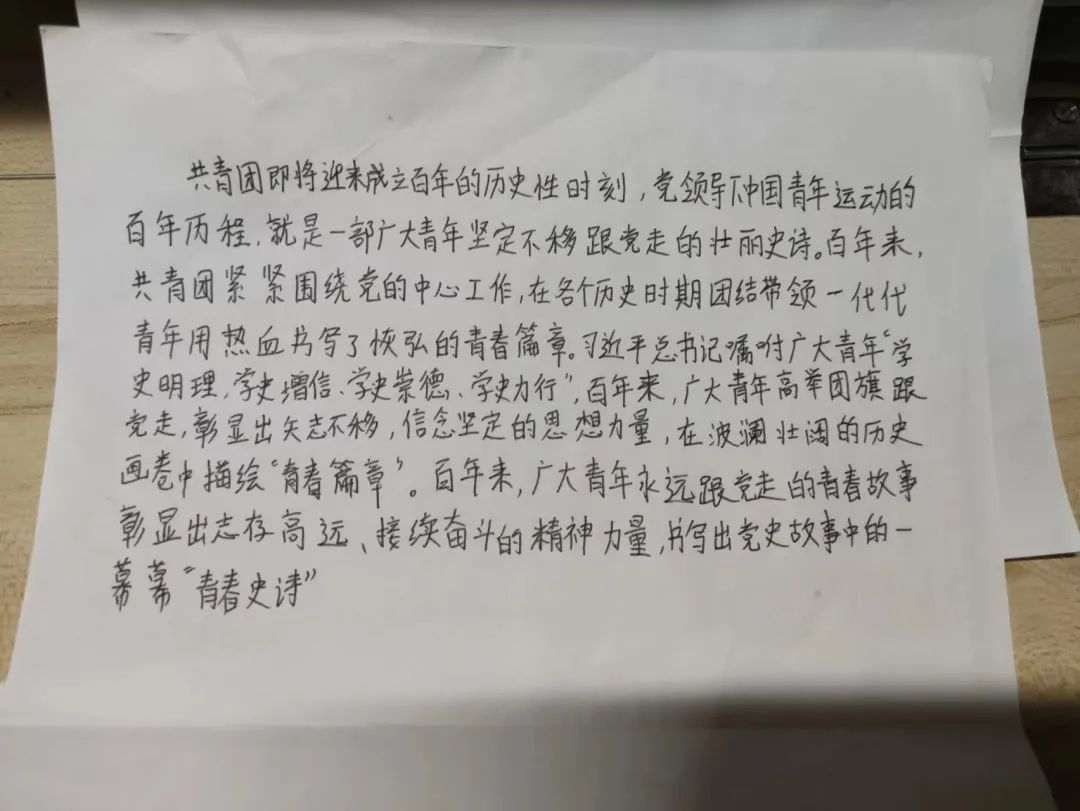 共青团即将迎来成立百年的历史性时刻，党领导下中国青年运动的
百年历程，就是一部广大青年坚定不移跟党走的壮丽史诗。百年来，
共青团紧紧围绕党的中心工作，在各个历史时期团结带领一代代
青年用热血书写了恢弘的青春篇章。习近平总书记嘱咐广大青年“学
史明理，学史增信、学史崇德、学史力行”，百年来，广大青年高举团旗跟
党走，彰显出矢志不移，信念坚定的思想力量，在波澜壮阔的历史
画卷中描绘“青春篇章”。百年来，广大青年永远跟党走的青春故事
彰显出志存高远、接续奋斗的精神力量，书写出党史故事中的一
幕幕“青春史诗”